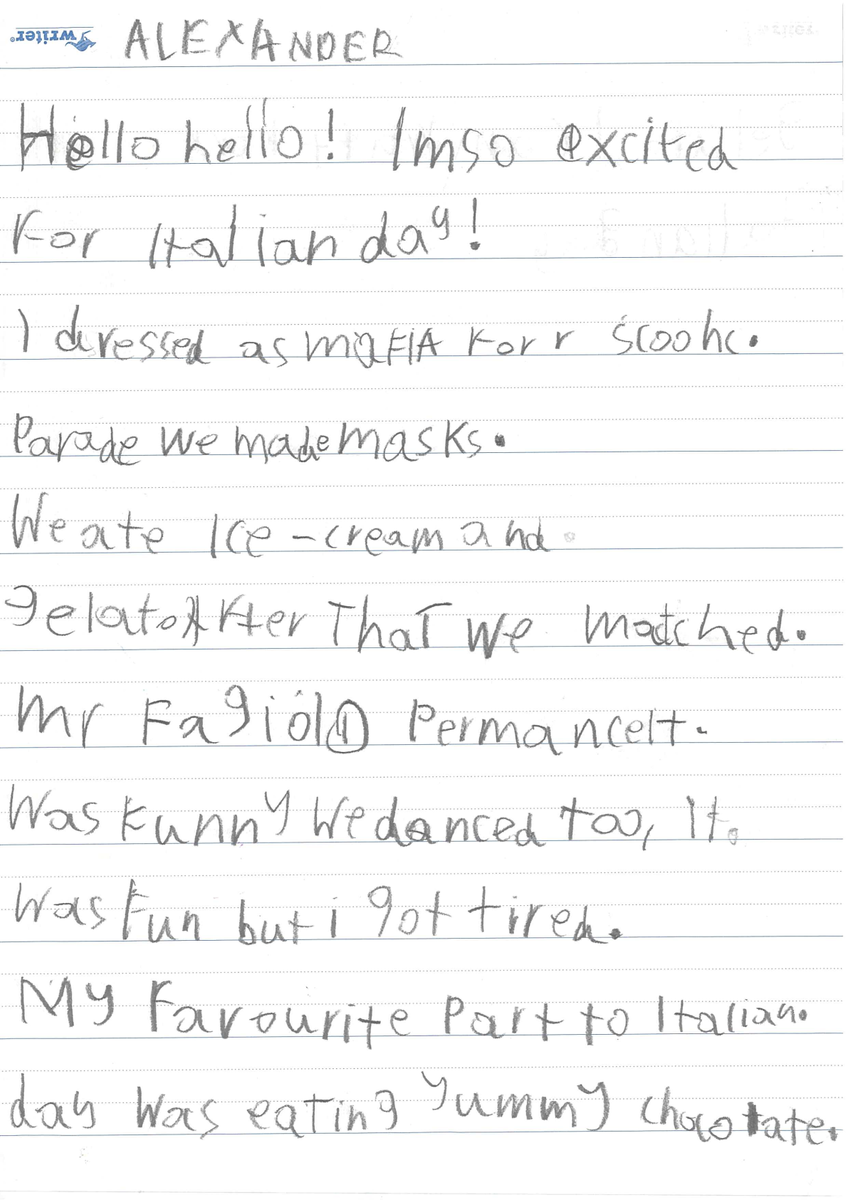 writer® ALEXANDER
Hello hello! Im so excited
For Italian day!
I dressed as maFIA For r scoohc.
Parade We made masks.
We ate Ice-cream and
gelato After ThaT we matched.
Mr Fagiolo Permancelt.
Was Funny We danced too, It.
Was Fun but i got tired.
My Favourite Part to Italian.
day Was eating Yummy chocolate.